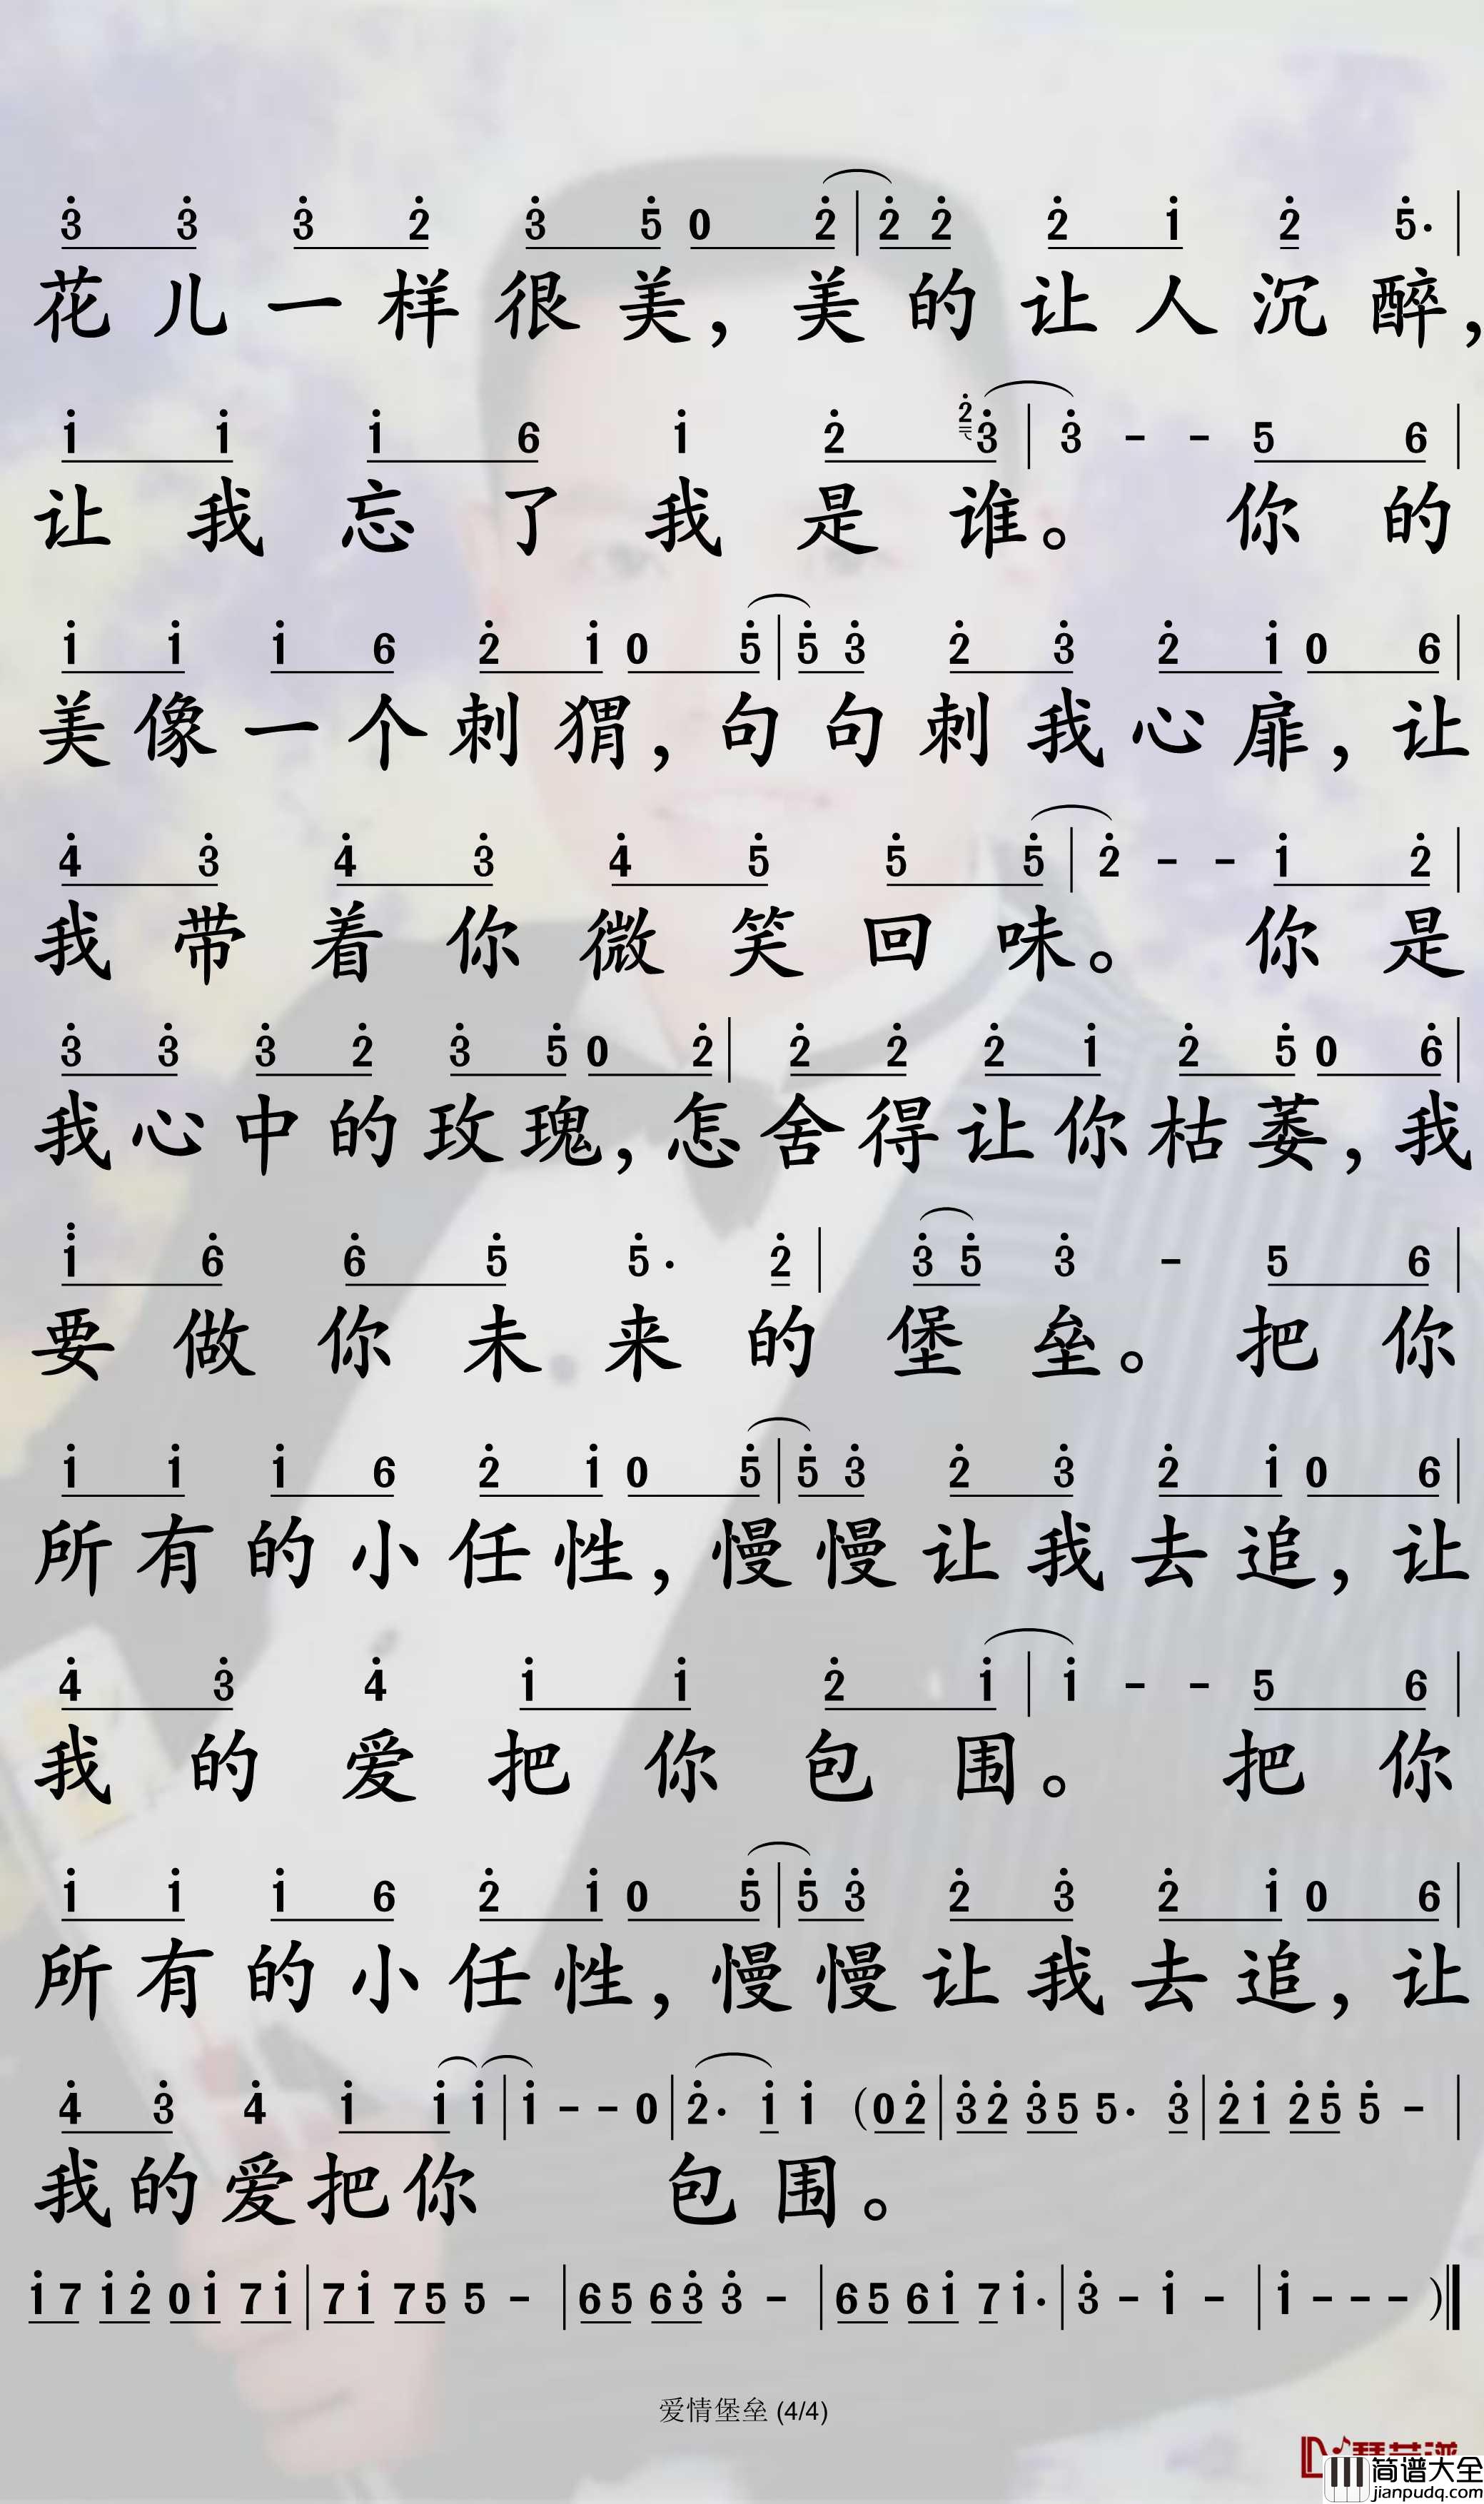 3 3 3 2 3 5 0 2 | 2 2 2 1 2 5· |
花儿一样很美，美的让人沉醉，
1 1 1 6 1 2 2 3 | 3 - - 5 6 |
让我忘了我是谁。你的
1 1 1 6 2 1 0 5 | 5 3 2 3 2 1 0 6 |
美像一个刺猬，句句刺我心扉，让
4 3 4 3 4 5 5 5 | 2 - - 1 2 |
我带着你微笑回味。你是
3 3 3 2 3 5 0 2 | 2 2 2 1 2 5 0 6 |
我心中的玫瑰，怎舍得让你枯萎，我
1 6 6 5 5· 2 | 3 5 3 - 5 6 |
要做你未来的堡垒。把你
1 1 1 6 2 1 0 5 | 5 3 2 3 2 1 0 6 |
所有的小任性，慢慢让我去追，让
4 3 4 1 1 2 1 | 1 - - 5 6 |
我的爱把你包围。把你
1 1 1 6 2 1 0 5 | 5 3 2 3 2 1 0 6 |
所有的小任性，慢慢让我去追，让
4 3 4 1 1 1 | 1 - - 0 | 2· 1 1 (0 2 | 3 2 3 5 5· 3 | 2 1 2 5 5 - |
我的爱把你包围。
1 7 1 2 0 1 7 1 | 7 1 7 5 5 - | 6 5 6 3 3 - | 6 5 6 1 7 1· | 3 - 1 - | 1 - - - )
爱情堡垒 (4/4)
简谱大全
jianpudq.com